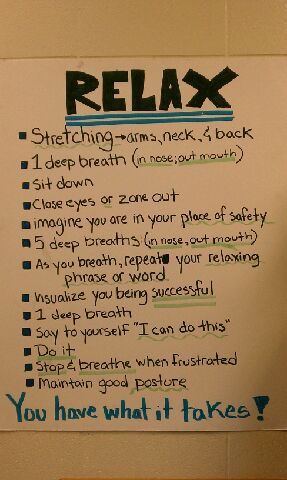 RELAX
Stretching → arms, neck, & back
1 deep breath (in nose; out mouth)
Sit down
Close eyes or zone out
imagine you are in your place of safety
5 deep breaths (in nose, out mouth)
As you breath, repeat your relaxing
phrase or word
Visualize you being successful
1 deep breath
Say to yourself "I can do this"
Do it
Stop & breathe when frustrated
Maintain good posture
You have what it takes!